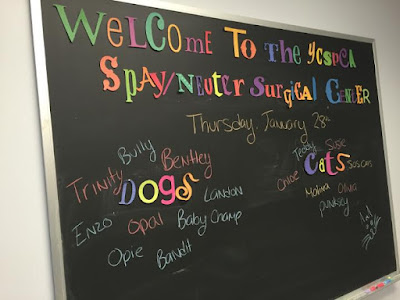 WELCOME TO THE YCSPCA
SPAY/NEUTER SURGICAL CENTER
Thursday, January 28th
Bully
Trinity Bentley
DOGS
Landon
Enzo Opal Baby Champ
Opie Bandit
Teddy Susie
CATS
Chloe
Olivia